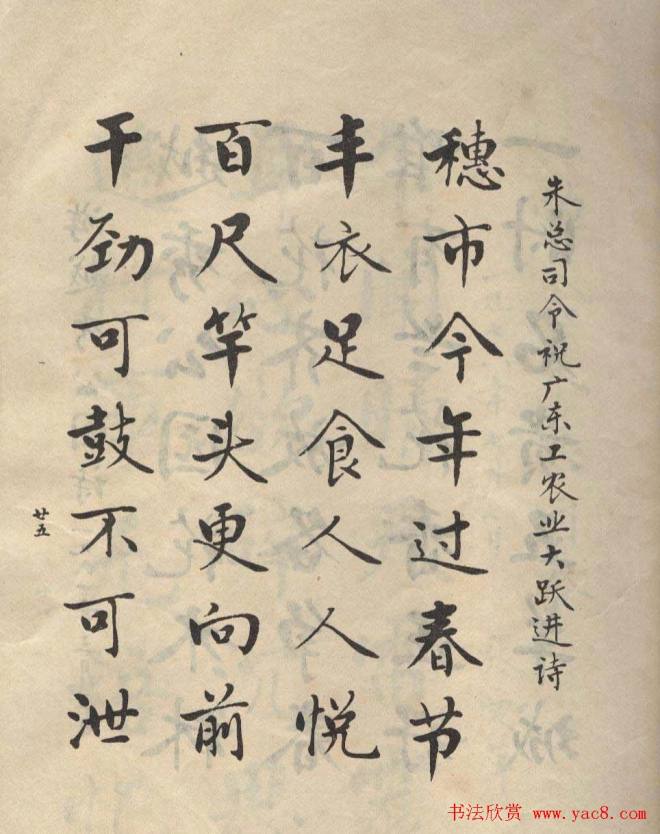 朱总司令祝广东工农业大跃进诗
穗市今年过春节
丰衣足食人人悦
百尺竿头更向前
干劲可鼓不可泄
廿五
书法欣赏 www.yac8.com